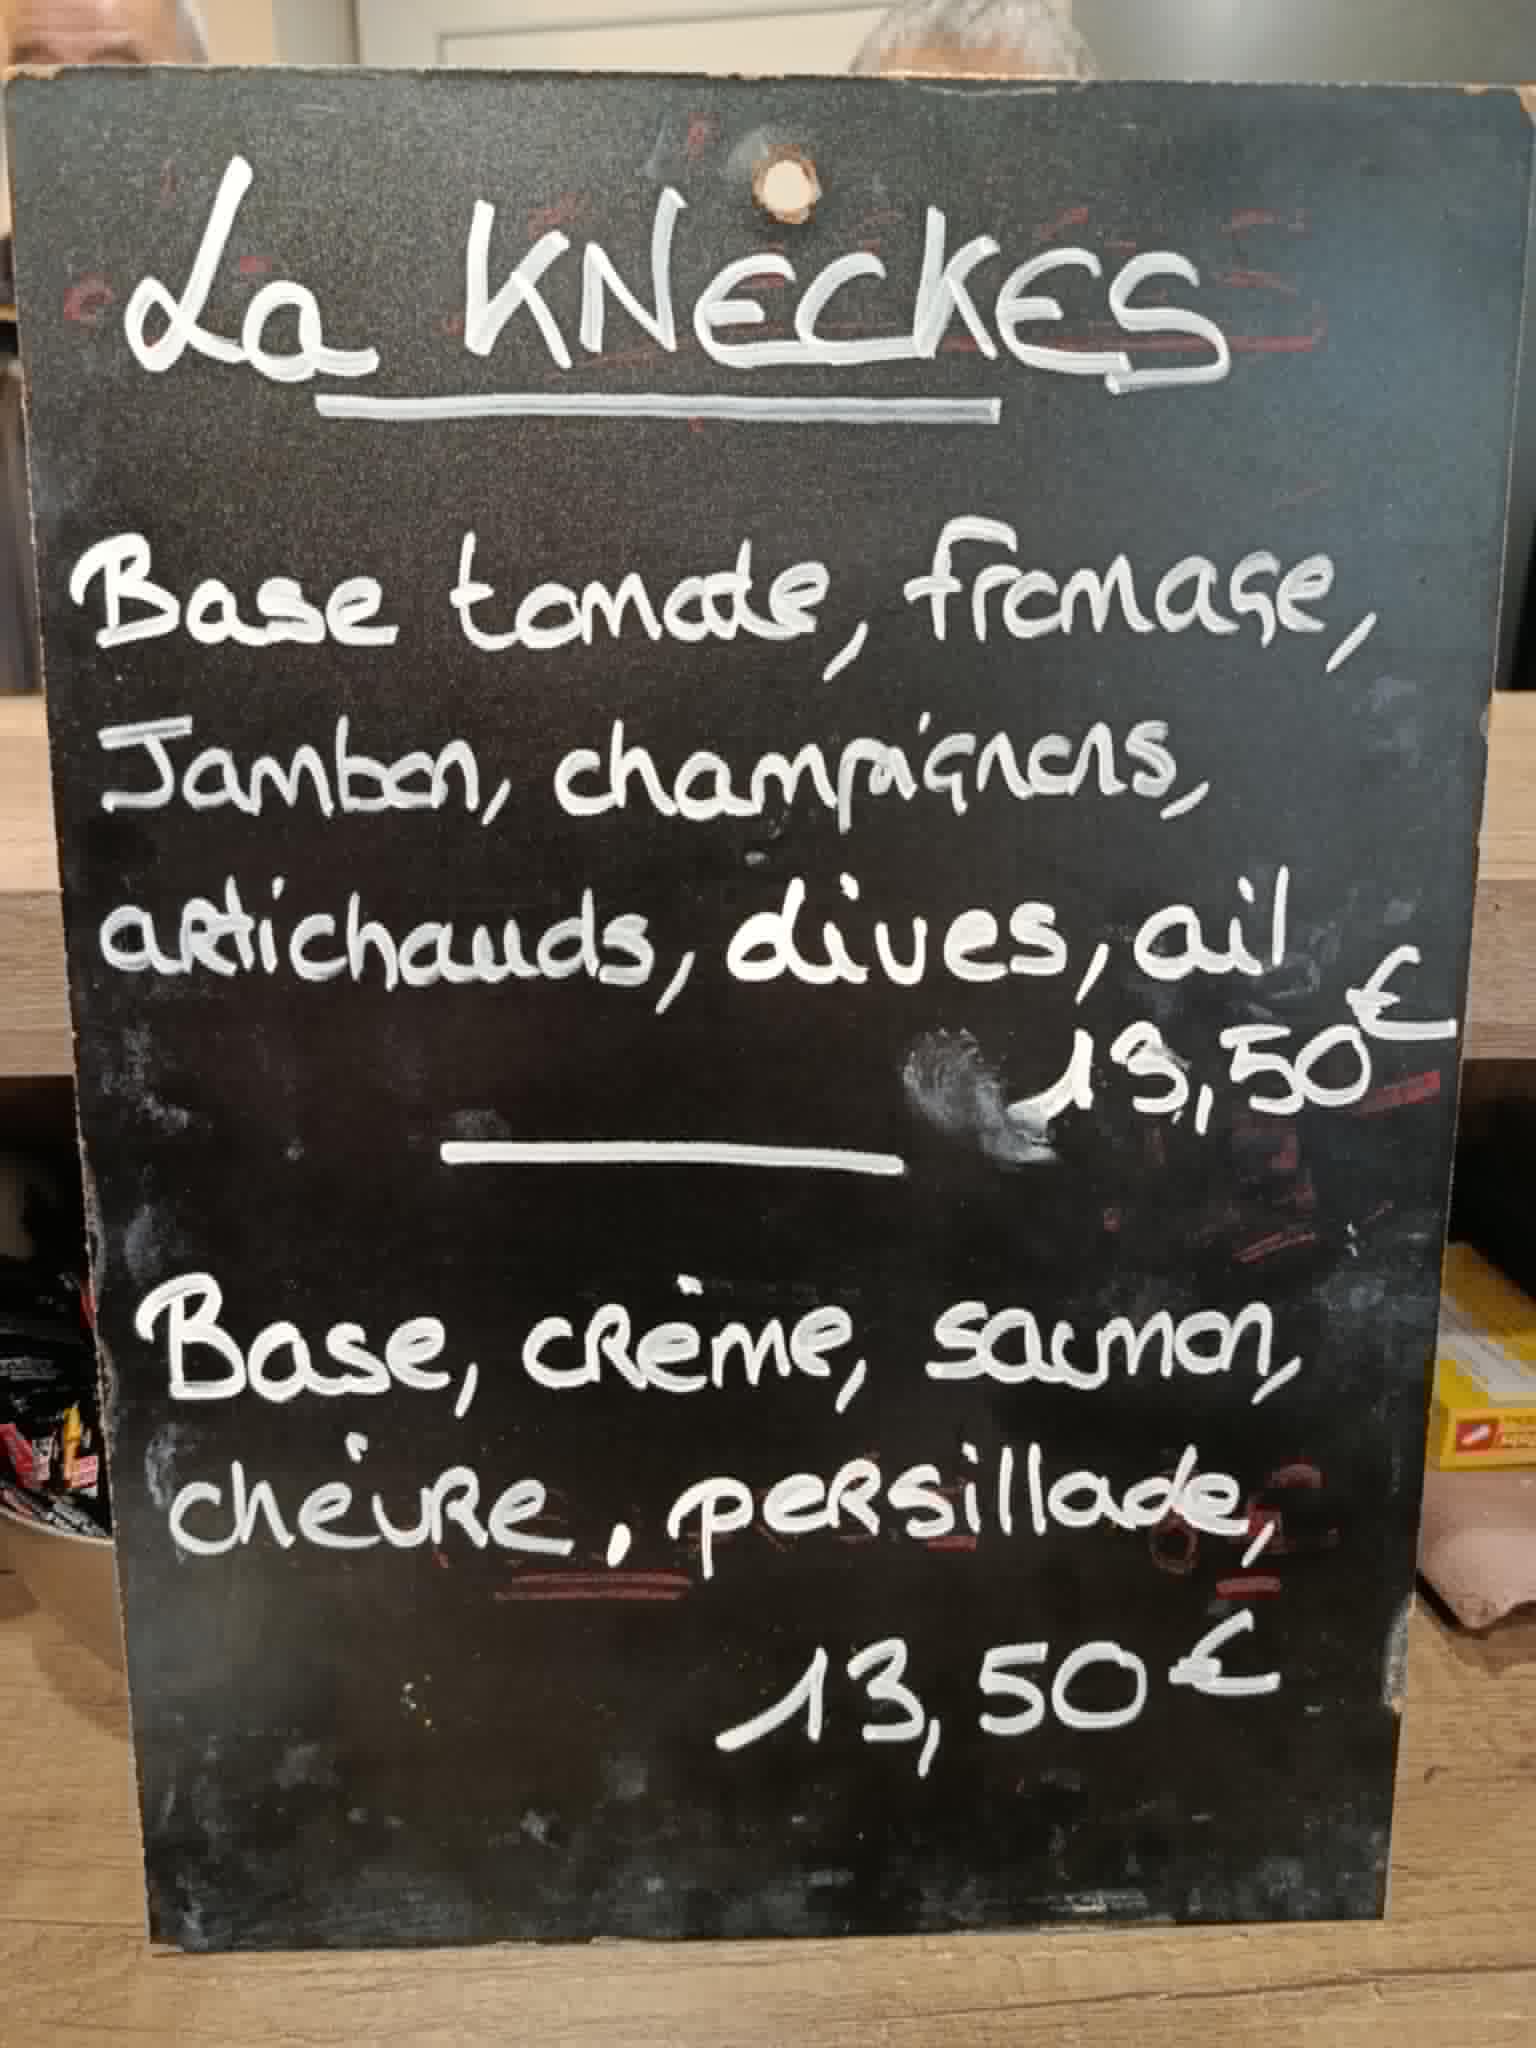 La KNECKES
Base tomate, fromage,
Jambon, champignons,
artichauds, olives, ail
13,50€
Base, crème, saumon,
chèvre, persillade,
13,50€